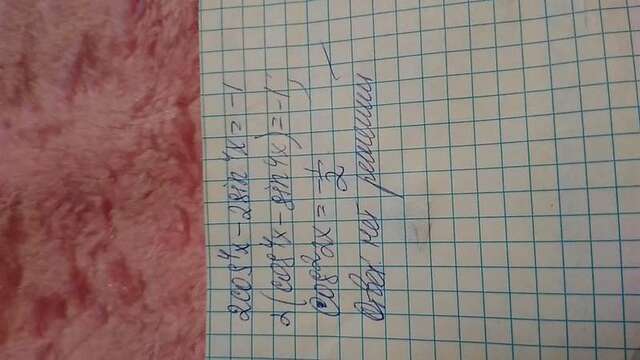 2cos⁴x - 2sin⁴x = -1
2(cos⁴x - sin⁴x) = -1;
cos²2x = -1/2
Ответ: нет решений